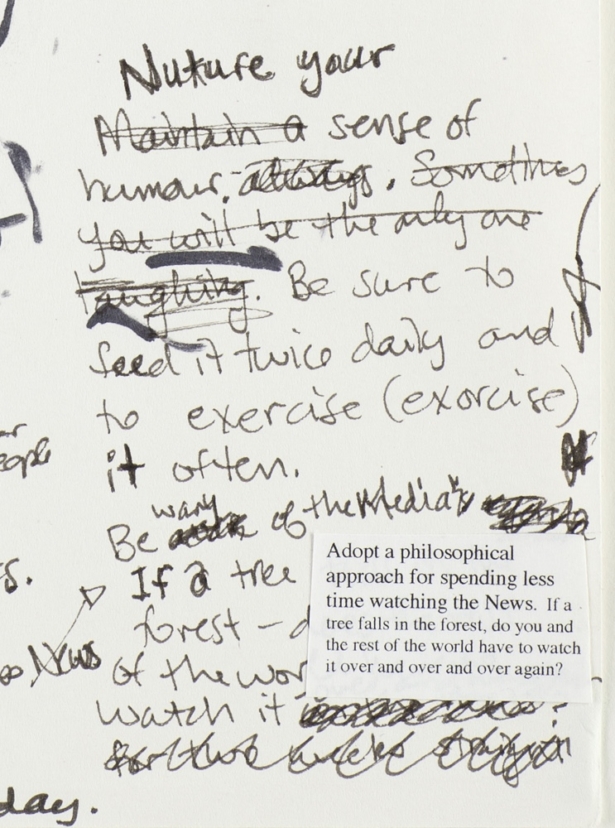 Nuture your
Maintain a sense of
humour. always. Sometimes
you will be the only one
laughing. Be sure to
feed it twice daily and
to exercise (exorcise)
it often.
wary
Be of the Media's
If a tree
forest –
of the wor
watch it
for two weeks straight
Adopt a philosophical
approach for spending less
time watching the News. If a
tree falls in the forest, do you and
the rest of the world have to watch
it over and over and over again?
eople
s.
News
day.